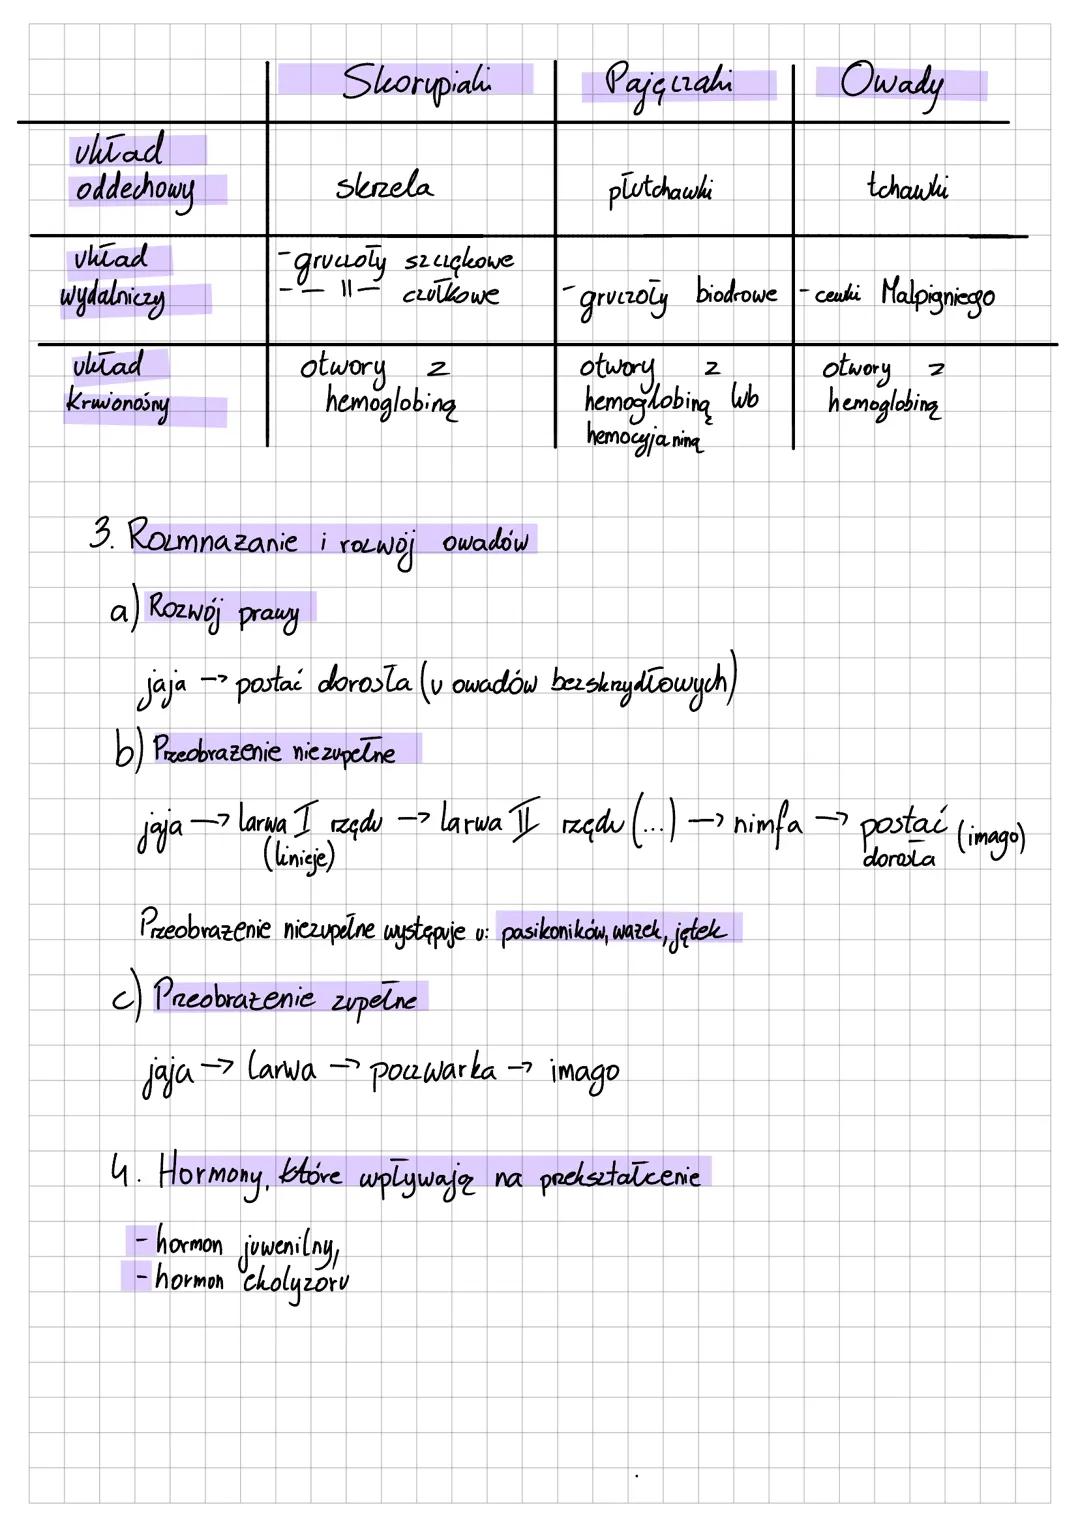 Skorupiaki Pajęczaki Owady
układ
oddechowy skrzela płutchawki tchawki
układ -gruczoły szczękowe
wydalniczy -—॥— czułkowe -gruczoły biodrowe -cewki Malpigniego
układ otwory z otwory z otwory z
krwionośny hemoglobiną hemoglobiną lub hemoglobiną
hemocyjaniną
3. Rozmnażanie i rozwój owadów
a) Rozwój prawy
jaja -> postać dorosła (u owadów bezskrzydłowych)
b) Przeobrażenie niezupełne
jaja -> larwa I rzędu -> larwa II rzędu (...) -> nimfa -> postać (imago)
(linieje) dorosła
Przeobrażenie niezupełne występuje u: pasikoników, ważek, jętek
c) Przeobrażenie zupełne
jaja -> larwa -> poczwarka -> imago
4. Hormony, które wpływają na przekształcenie
- hormon juwenilny,
- hormon ekolyzoru